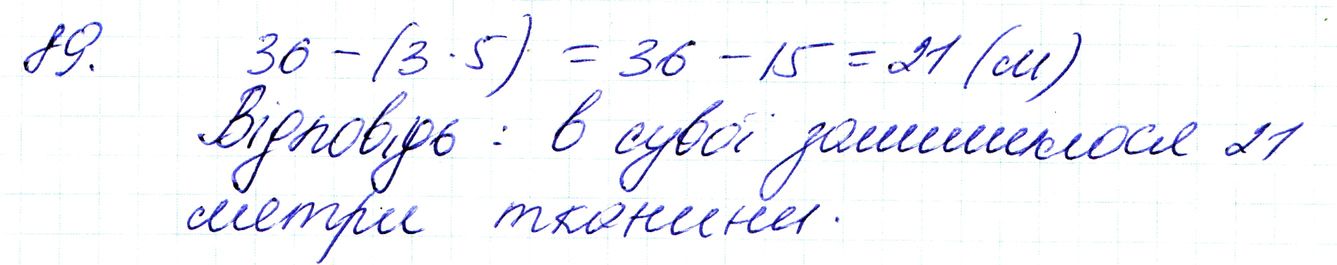 89. 36 - (3 · 5) = 36 - 15 = 21 (м)
Відповідь: в сувої залишилося 21
метри тканини.